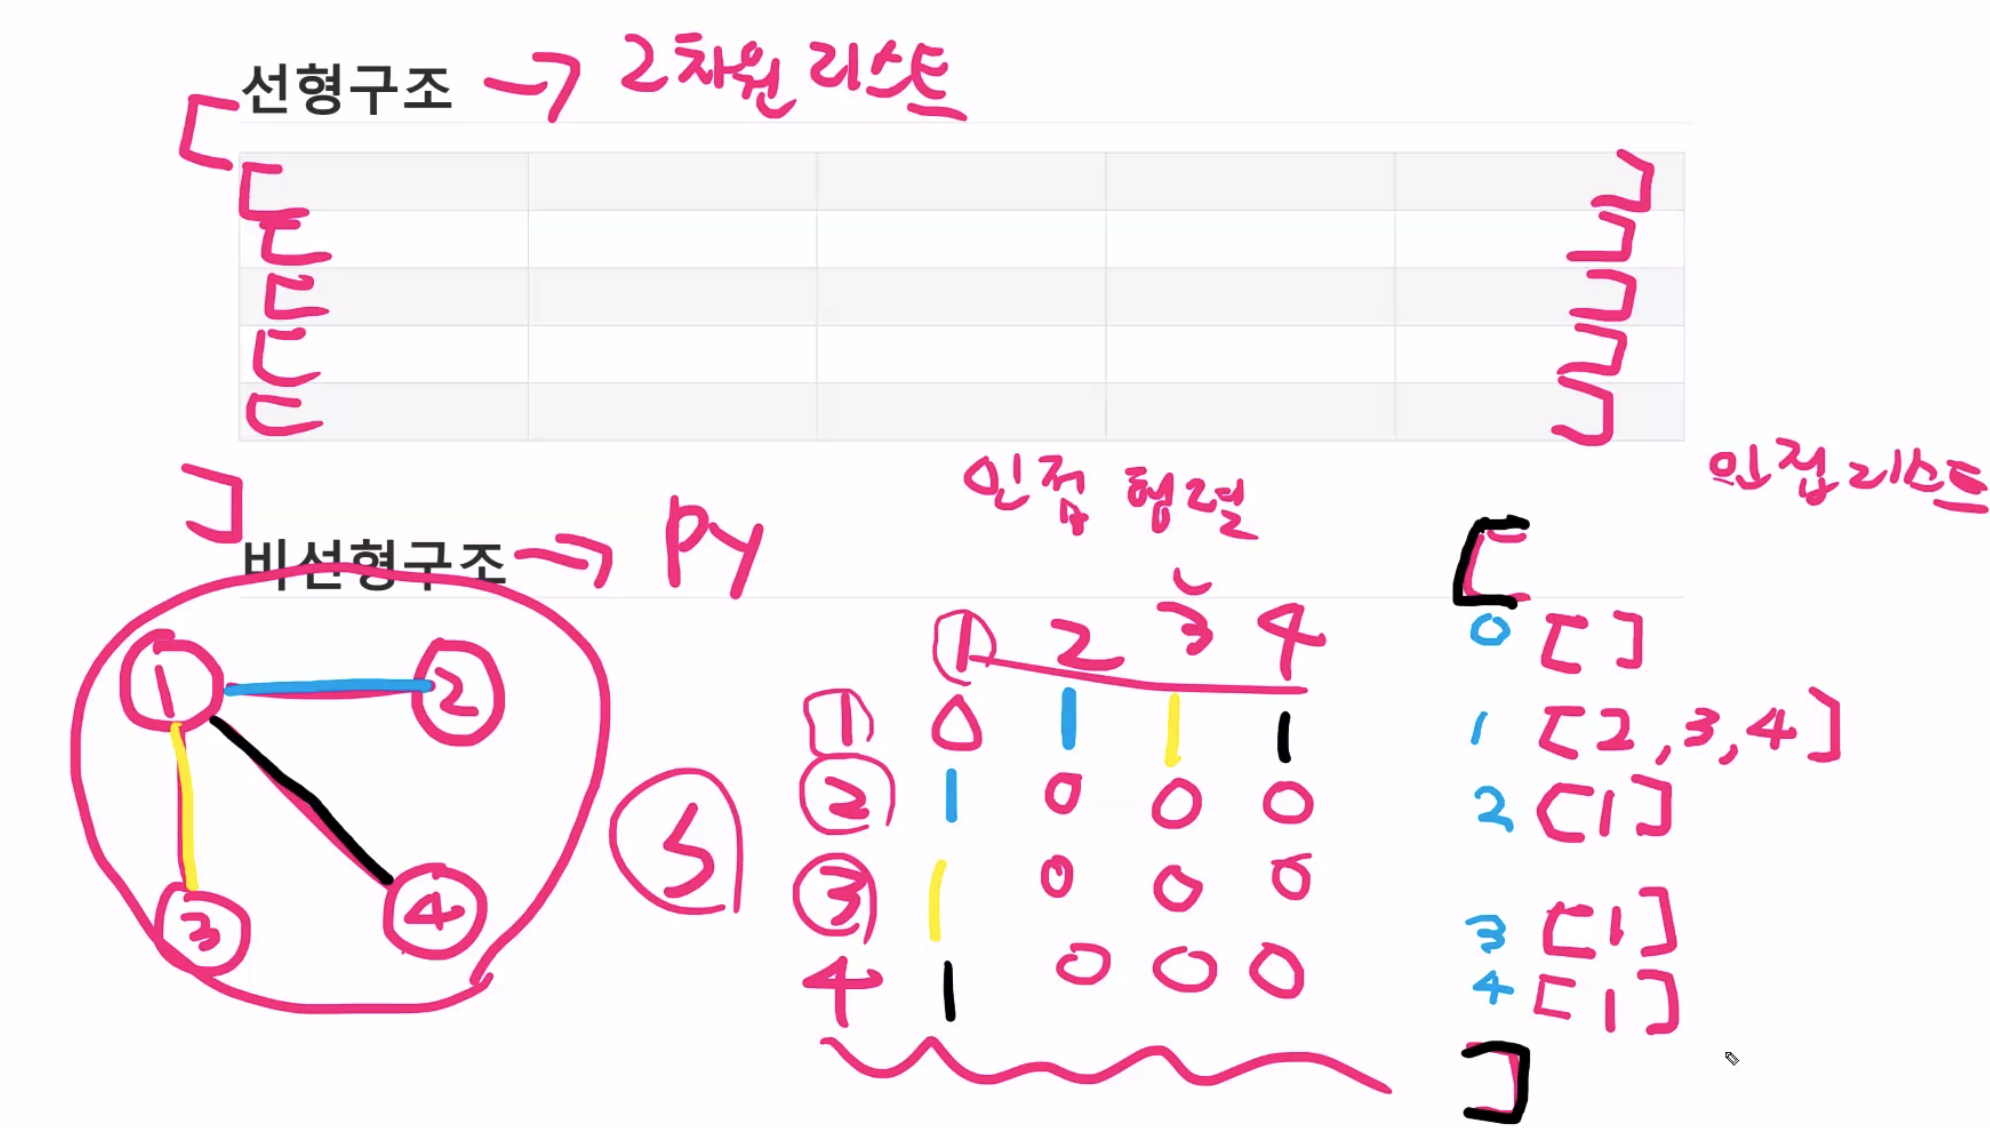 선형구조 → 2차원 리스트
[
[ ]
[ ]
[ ]
[ ]
[ ]
]
비선형구조 → py
1 2
3 4
5
인접 행렬
1 2 3 4
1 0 1 1 1
2 1 0 0 0
3 1 0 0 0
4 1 0 0 0
인접 리스트
[
0 [ ]
1 [2,3,4]
2 [1]
3 [1]
4 [1]
]